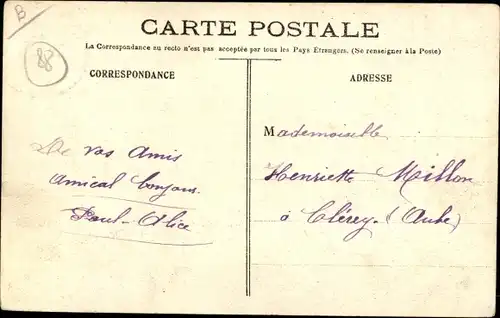 B
88
CARTE POSTALE
La Correspondance au recto n'est pas acceptée par tous les Pays Etrangers. (Se renseigner à la Poste)
CORRESPONDANCE
ADRESSE
De vos Amis
Amical bonjour.
Paul-Alice
Mademoiselle
Henriette Millon
à Clérey. (Aube)